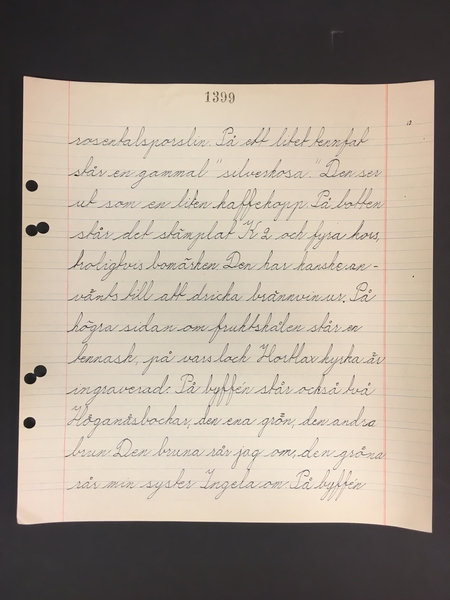 1399
rosentalsporslin. På ett litet tennfat
står en gammal "silverkosa". Den ser
ut som en liten kaffekopp. På botten
står det stämplat K 2 och fyra kors,
troligtvis bomärken. Den har kanske an-
vänts till att dricka brännvin ur. På
högra sidan om fruktskålen står en
tennask, på vars lock Hortlax kyrka är
ingraverad. På byffén står också två
Höganäsbockar, den ena grön, den andra
brun. Den bruna rår jag om, den gröna
rår min syster Ingela om. På byffén